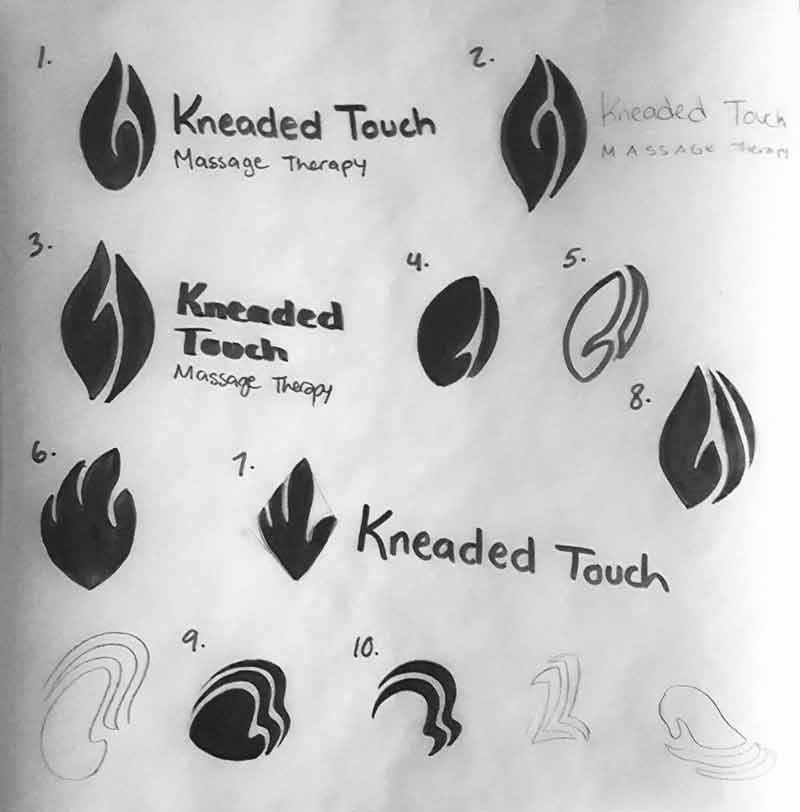 1.
Kneaded Touch
Massage Therapy
2.
Kneaded Touch
MASSAGE Therapy
3.
Kneaded
Touch
Massage Therapy
4.
5.
6.
7.
Kneaded Touch
8.
9.
10.